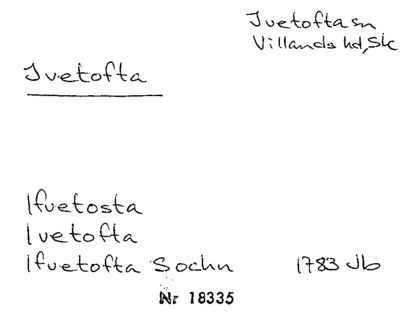 Ivetofta sn
Villands hd, Sk
Ivetofta
Ifvetosta
Ivetofta
Ifvetofta Sochn 1783 Jb
Nr 18335